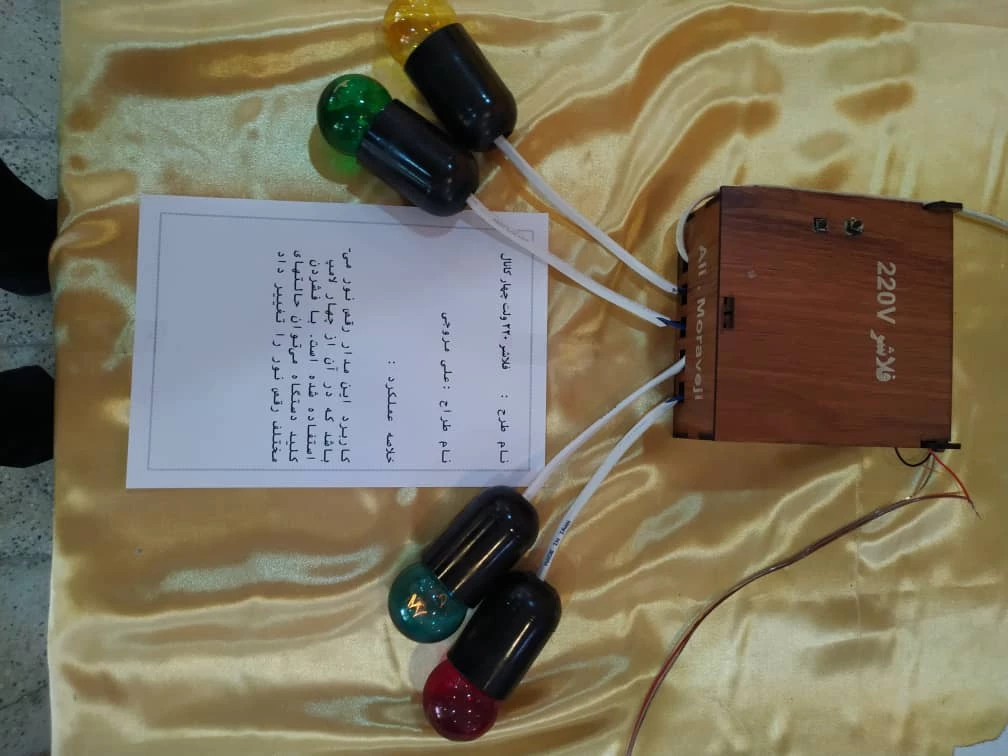 نام طرح : فلاشر ۲۲۰ ولت چهار کانال
نام طراح : علی مروجی
خلاصه عملکرد :
کاربرد این مدار رقص نور می‌
باشد که در آن از چهار لامپ
استفاده شده است. با فشردن
کلید دستگاه می‌توان حالتهای
مختلف رقص نور را تغییر داد
فلاشر 220V
Ali . Moraveji
MADE IN IRAN